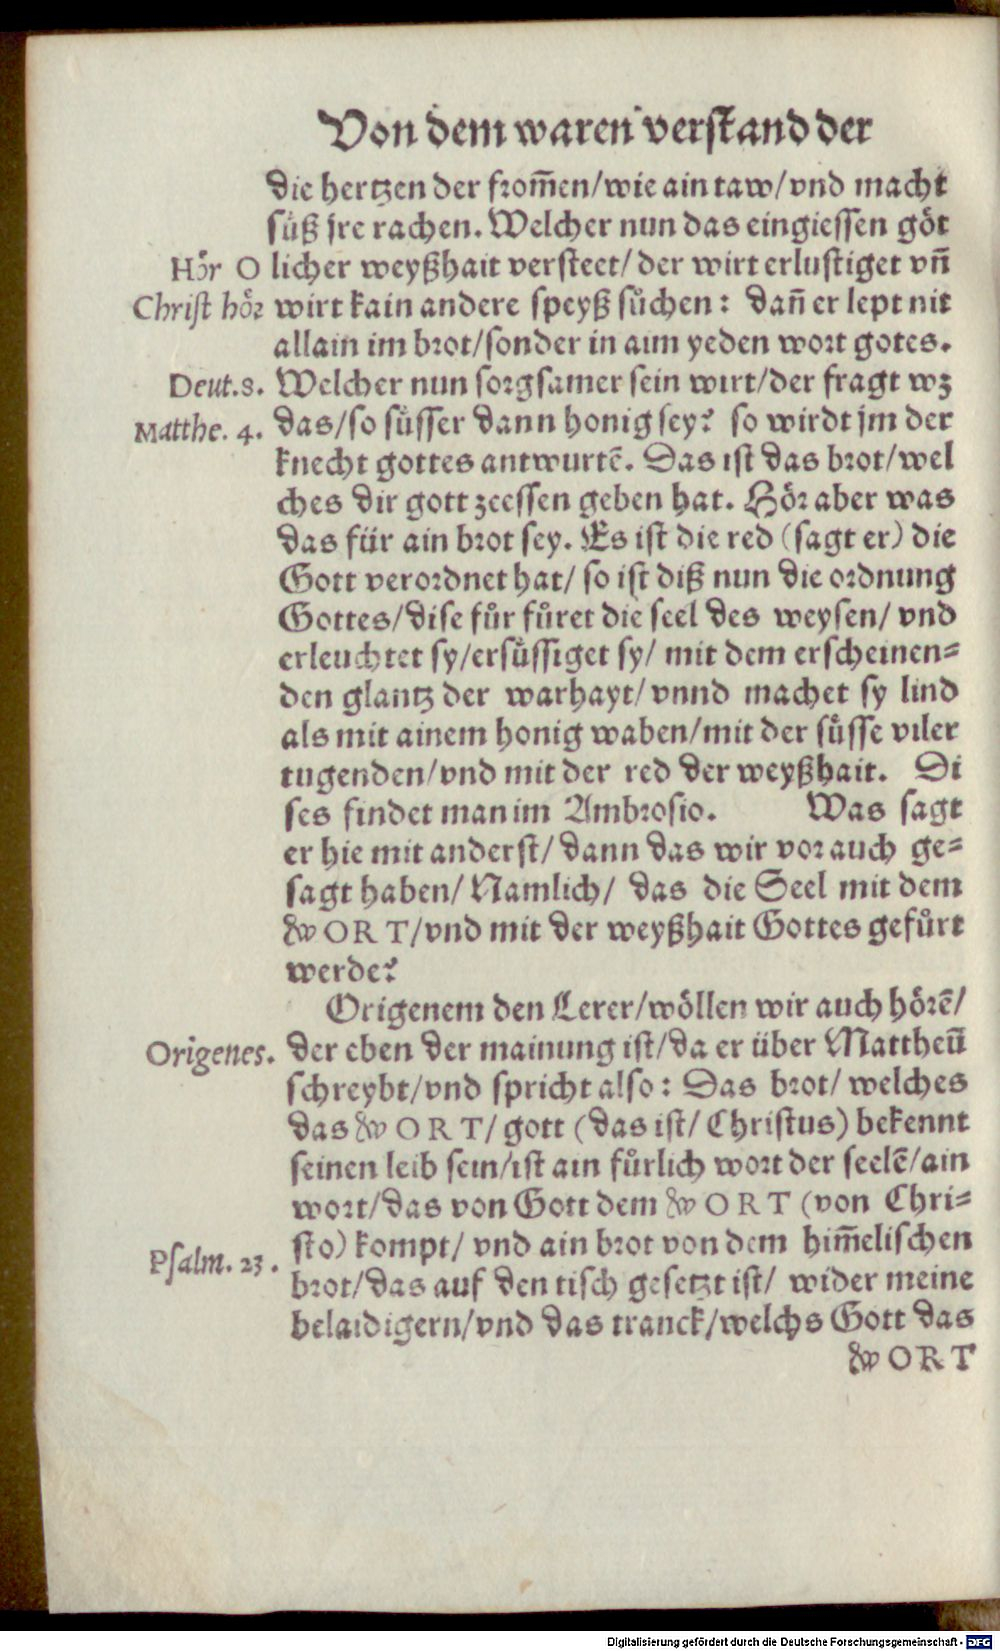 Von dem waren verstand der
die hertzen der from̃en/wie ain taw/vnd macht
suͤß jre rachen. Welcher nun das eingiessen goͤt
Hoͤr O
licher weyßhait versteet/ der wirt erlustiget vñ
Christ hoͤr
wirt kain andere speyß suͤchen: dañ er lept nit
allain im brot/sonder in aim yeden wort gotes.
Deut.8.
Welcher nun sorgsamer sein wirt/der fragt wz
Matthe. 4.
das/so suͤsser dann honig sey? so wirdt jm der
knecht gottes antwurtẽ. Das ist das brot/wel
ches dir gott zeessen geben hat. Hoͤr aber was
das für ain brot sey. Es ist die red (sagt er) die
Gott verordnet hat/ so ist diß nun die ordnung
Gottes/dise fuͤr fuͤret die seel des weysen/ vnd
erleuchtet sy/ersuͤssiget sy/ mit dem erscheinen=
den glantz der warhayt/vnnd machet sy lind
als mit ainem honig waben/mit der suͤsse viler
tugenden/vnd mit der red der weyßhait. Di
ses findet man im Ambrosio. Was sagt
er hie mit anderst/ dann das wir vor auch ge=
sagt haben/ Namlich/ das die Seel mit dem
WORT/vnd mit der weyßhait Gottes gefuͤrt
werde?
Origenem den Lerer/woͤllen wir auch hoͤrẽ/
Origenes.
der eben der mainung ist/da er über Mattheũ
schreybt/vnd spricht also: Das brot/ welches
das WORT/ gott (das ist/ Christus) bekennt
seinen leib sein/ist ain fuͤrlich wort der seelẽ/ain
wort/das von Gott dem WORT (von Chri=
sto) kompt/ vnd ain brot von dem him̃elischen
Psalm. 23.
brot/das auf den tisch gesetzt ist/ wider meine
belaidigern/vnd das tranck/welchs Gott das
WORT
Digitalisierung gefördert durch die Deutsche Forschungsgemeinschaft - DFG